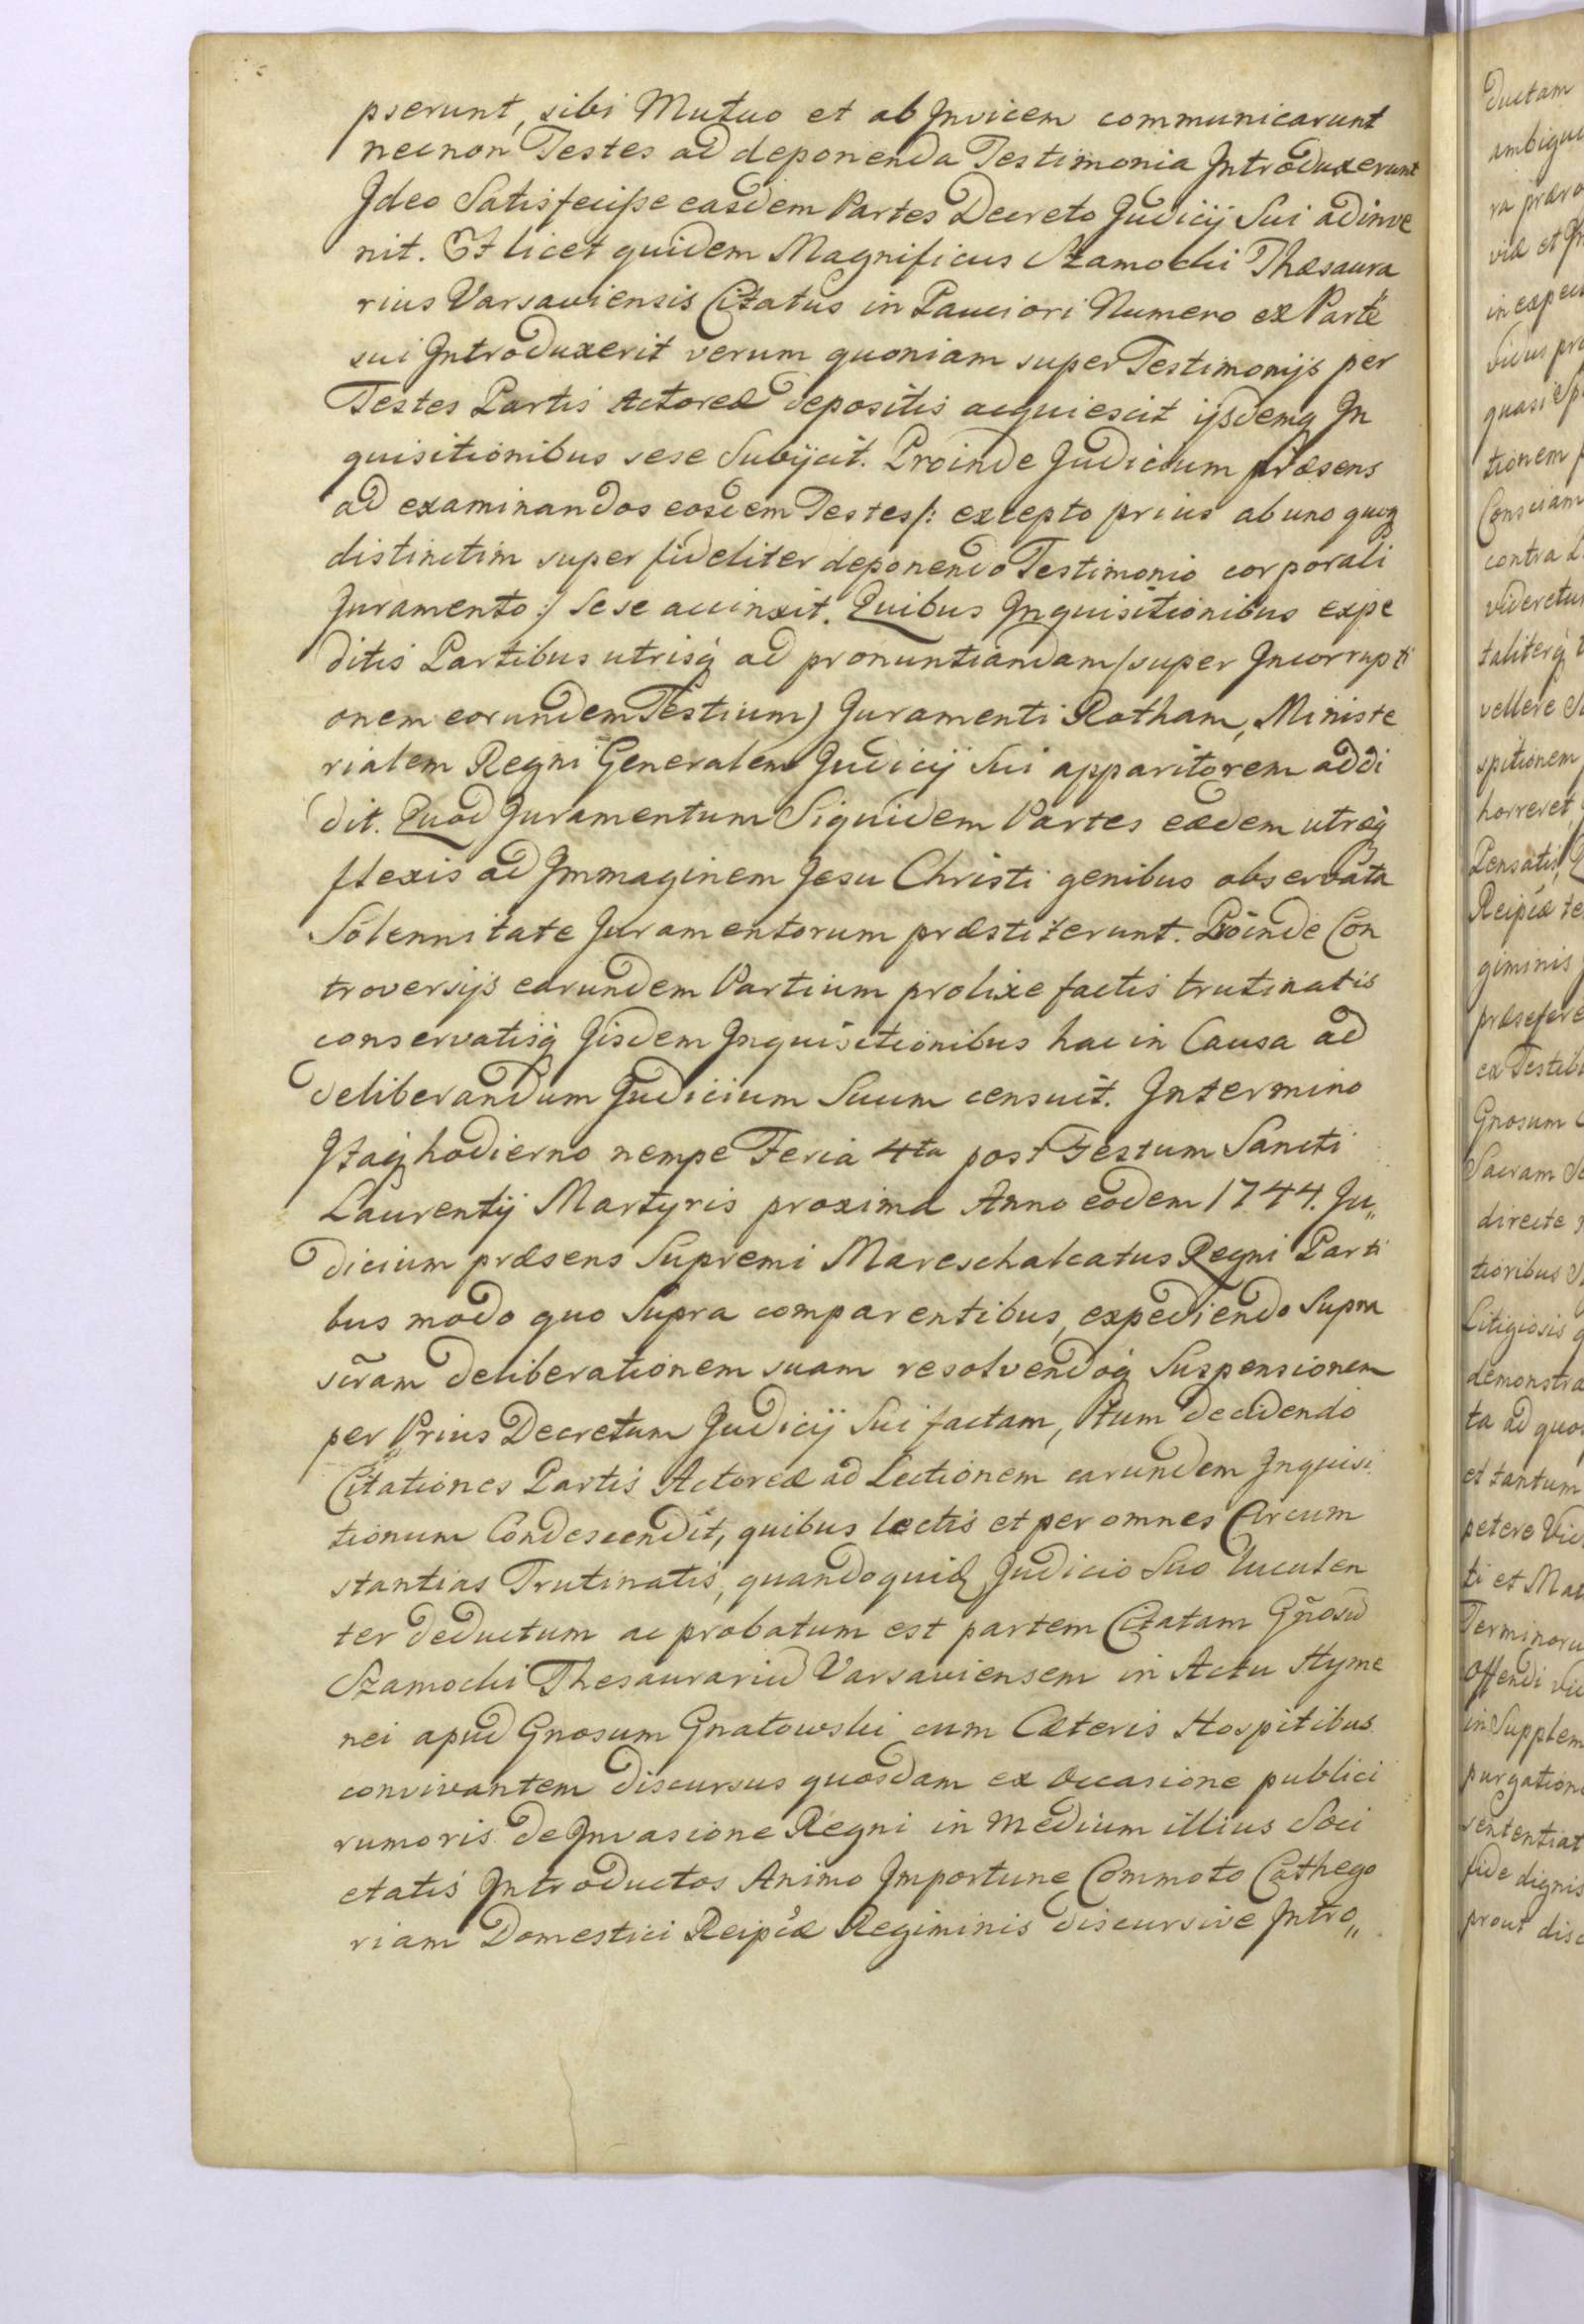 pserunt, sibi Mutuo et ab Invicem communicarunt
necnon Testes ad deponenda Testimonia Introduxerunt
Ideo Satisfecisse easdem Partes Decreto Judicij Sui adinve
nit. Et licet quidem Magnificus Szamocki Thæsaura
rius Varsaviensis Citatus in Pauciori Numero ex Parte
sui Introduxerit verum quoniam super Testimonijs per
Testes Partis Actoreæ depositis acquiescit ijsdemq In
quisitionibus sese Subijcit. Proinde Judicium præsens
ad examinandos eosdem Testes/: excepto prius ab uno quoq
distinctim super fideliter deponendo Testimonio corporali
Juramento :/ sese accinxit. Quibus Inquisitionibus expe
ditis Partibus utrisq ad pronuntiandam /super Incorrupti
onem eorundem Testium) Juramenti Rotham, Ministe
rialem Regni Generalem Judicij Sui apparitorem addi
dit. Quod Juramentum Siquidem Partes eædem utræq
flexis ad Immaginem Jesu Christi genibus observata
Solennitate Juramentorum præstiterunt. Proinde Con
troversijs earundem Partium prolixe factis trutinatis
conservatisq Iisdem Inquisitionibus hac in Causa ad
deliberandum Judicium Suum censuit. In termino
Itaq hodierno nempe Feria 4ta post Festum Sancti
Laurentij Martyris proxima Anno eodem 1744. Ju„
dicium præsens Supremi Mareschalcatus Regni Parti
bus modo quo Supra comparentibus, expediendo Supra
scr̃am deliberationem suam resolvendoq Suspensionem
per Prius Decretum Judicij Sui factam, tum decidendo
Citationes Partis Actoreæ ad Lectionem earundem Inquisi
tionum Condescendit, quibus lectis et per omnes Circum
stantias Trutinatis, quandoquid Judicio Suo luculen
ter deductum ac probatum est partem Citatam Gñosũ
Szamocki Thesaurariũ Varsaviensem in Actu Hyme
nei apud Gnosum Gnatowski cum Cæteris Hospitibus
convivantem discursus quosdam ex Occasione publici
rumoris de Invasione Regni in Medium illius Soci
etatis Introductos Animo Importune Commoto Cathego
riam Domestici Reipcæ Regiminis discursive Intro„
ductam
in expe
tionem
Consciam
contra
vellere
spitionem
horreret
giminis
ex Testib
Gnosum
Sacram
directe
tioribus
Litigiosis
demonstra
ta ad quo
et tantum
petere
ti et Ma
Offendi
in Supplem
purgation
sententiat
fide dignis
prout dis